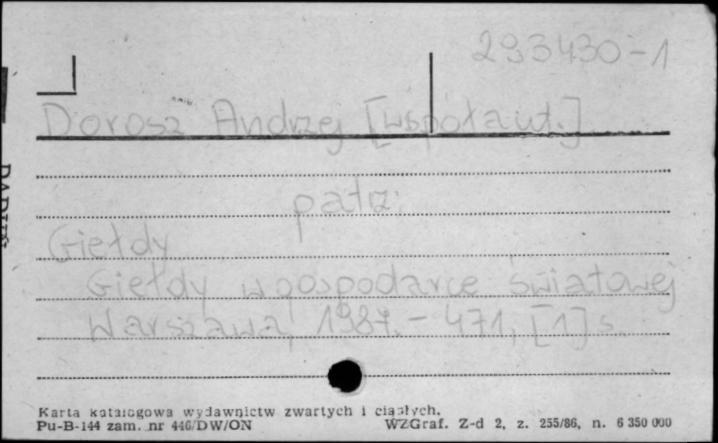 293430-1
Dorosz Andrzej [współaut.]
patrz:
Giełdy
Giełdy w gospodarce światowej
Warszawa, 1987. - 471, [1] s.
Karta katalogowa wydawnictw zwartych i ciągłych.
Pu-B-144 zam. nr 446/DW/ON WZGraf. Z-d 2, z. 255/86, n. 6 350 000